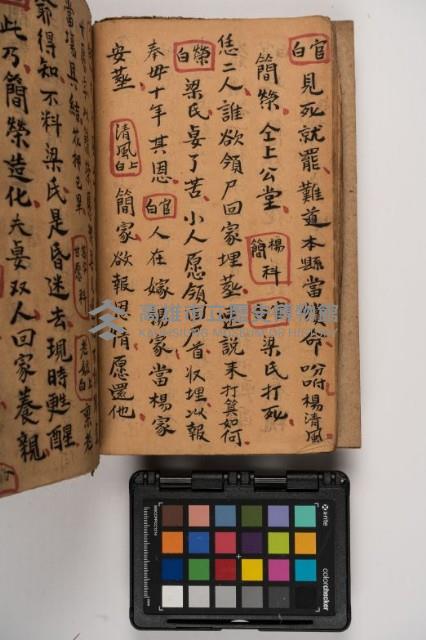 官白 見死就罷難道本縣當償命 吩咐楊清風
簡榮仝上公堂 楊簡科 官白 梁氏打死
恁二人誰欲領尸回家埋塟 說來打箕如何
榮白 梁氏妻了苦小人愿領尸首収埋以報
奉毋十年其恩 官白 人在嫁楊家當楊家
安塟 清風上白 簡家欲報恩清愿還他
爺得知不料梁氏是昏迷去現時甦醒
此乃簡榮造化夫妻双人回家養親
高雄市立歷史博物館
KAOHSIUNG MUSEUM OF HISTORY
x-rite
colorchecker